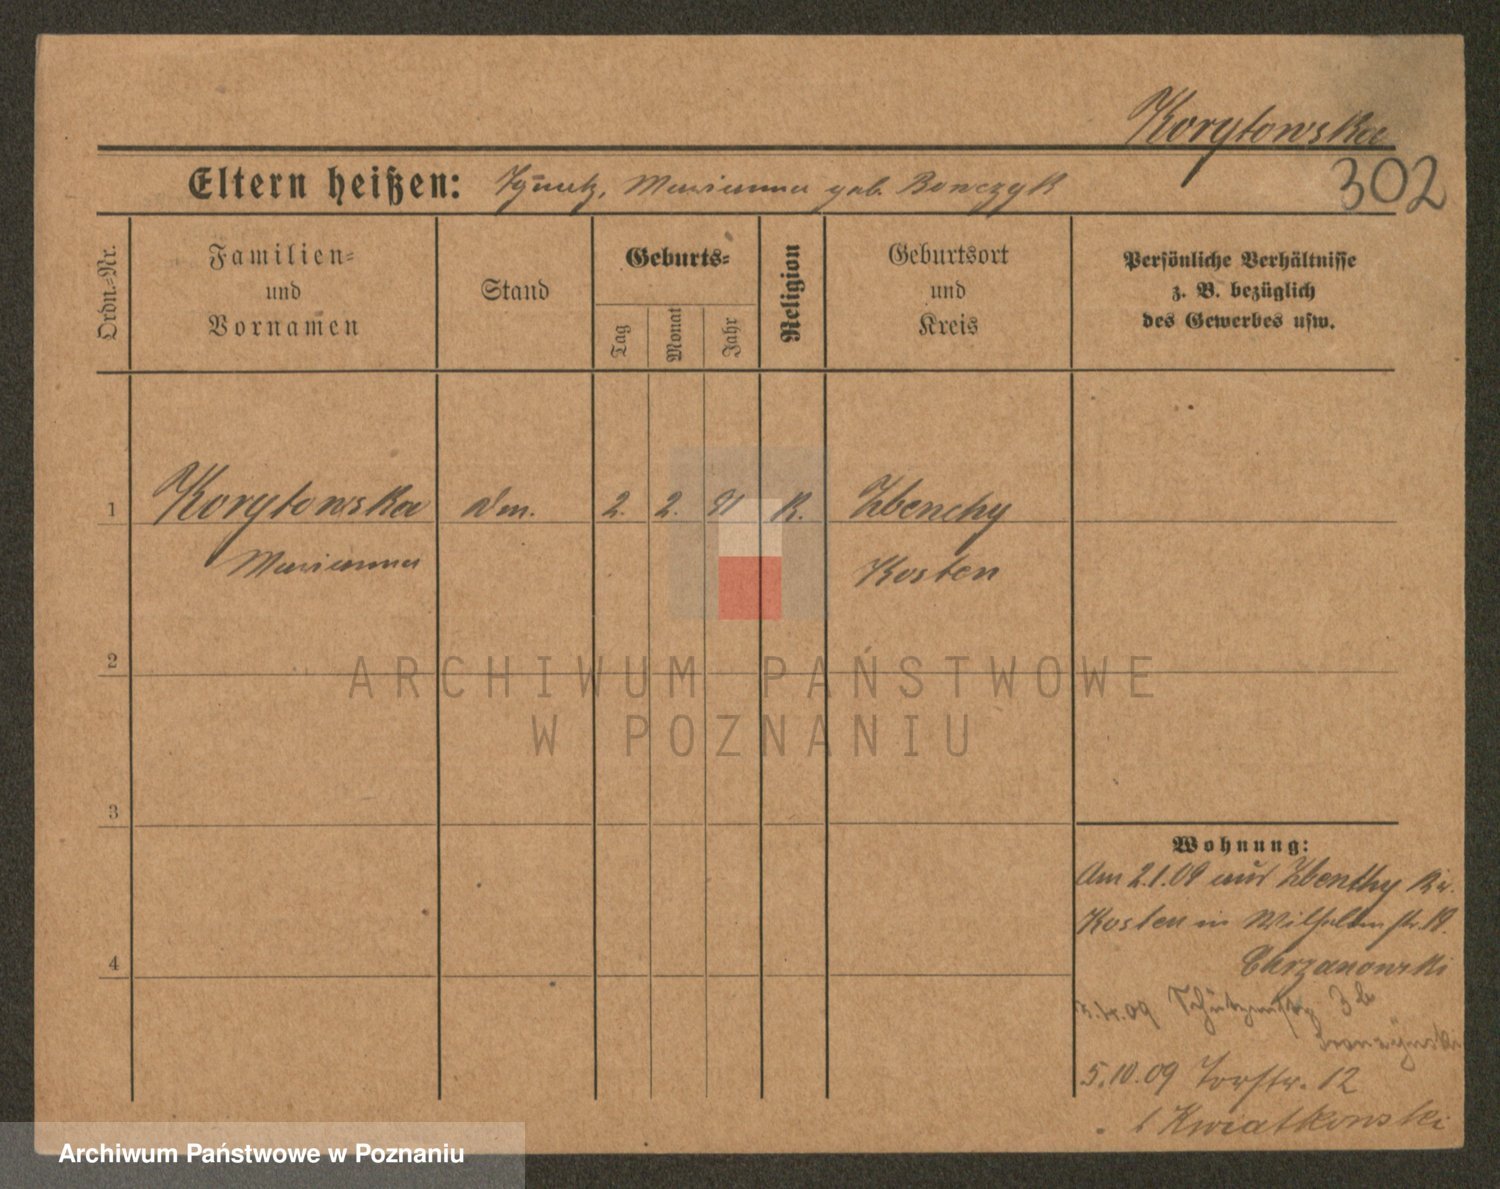 Korytowska
302
Eltern heißen: Ignatz, Marianna geb. Bonczyk
Ordn.-Nr.
Familien-
und
Vornamen
Stand
Geburts-
Tag
Monat
Jahr
Religion
Geburtsort
und
Kreis
Persönliche Verhältnisse
z. B. bezüglich
des Gewerbes usw.
1
Korytowska
Marianna
2. 2. 91 K.
Zbenchy
Kosten
2
ARCHIWUM PAŃSTWOWE
W POZNANIU
3
4
Wohnung:
Am 2.1.09 aus Zbenchy Kr.
Kosten in Wilhelmstr.
Chrzanowski
09 Schützenstr 3b
5.10.09 Torstr. 12
Kwiatkowski
Archiwum Państwowe w Poznaniu